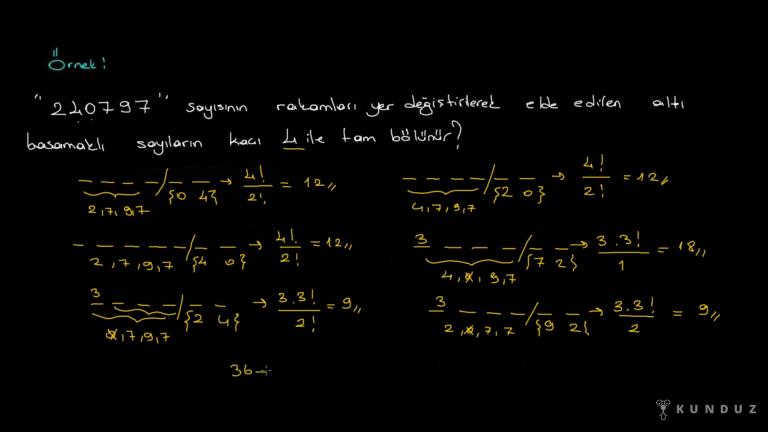 Örnek:
"240797" sayısının rakamları yer değiştirilerek elde edilen altı
basamaklı sayıların kaçı 4 ile tam bölünür?
_ _ _ _ / _ _ → 4!/2! = 12,,
2,7,9,7 {0 4}
_ _ _ _ / _ _ → 4!/2! = 12,,
4,7,9,7 {2 0}
_ _ _ _ _ / _ _ → 4!/2! = 12,,
2,7,9,7 {4 0}
3 _ _ _ / _ _ → 3.3!/1 = 18,,
4,0,9,7 {7 2}
3 _ _ _ / _ _ → 3.3!/2! = 9,,
0,7,9,7 {2 4}
3 _ _ _ / _ _ → 3.3!/2 = 9,,
2,0,7,7 {9 2}
36
KUNDUZ